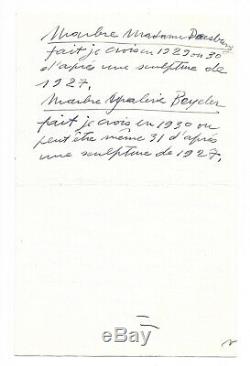 Marbre Madame
fait je crois en 1929 ou 30
d'après une sculpture de
1927.
Marbre
fait je crois en 1930 ou
peut être même 31 d'après
une sculpture de 1927.
II
ebay